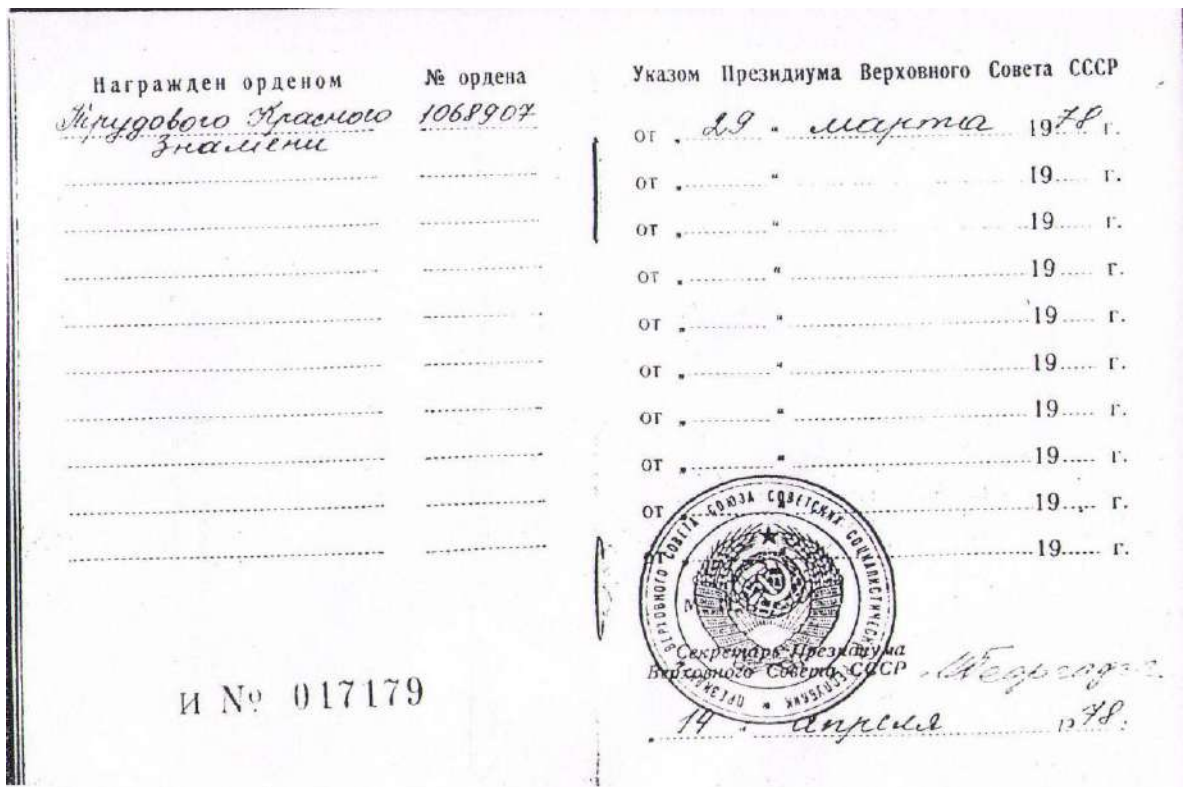 Награжден орденом
№ ордена
Трудового Красного
1068907
Знамени
И № 017179
Указом Президиума Верховного Совета СССР
от „ 29 “ марта 1978 г.
от „ “ 19 г.
от „ “ 19 г.
от „ “ 19 г.
от „ “ 19 г.
от „ “ 19 г.
от „ “ 19 г.
от „ “ 19 г.
от 19 г.
19 г.
ПРЕЗИДИУМ ВЕРХОВНОГО СОВЕТА СОЮЗА СОВЕТСКИХ СОЦИАЛИСТИЧЕСКИХ РЕСПУБЛИК
М
Секретарь Президиума
Верховного Совета СССР
„ 14 “ апреля 1978.